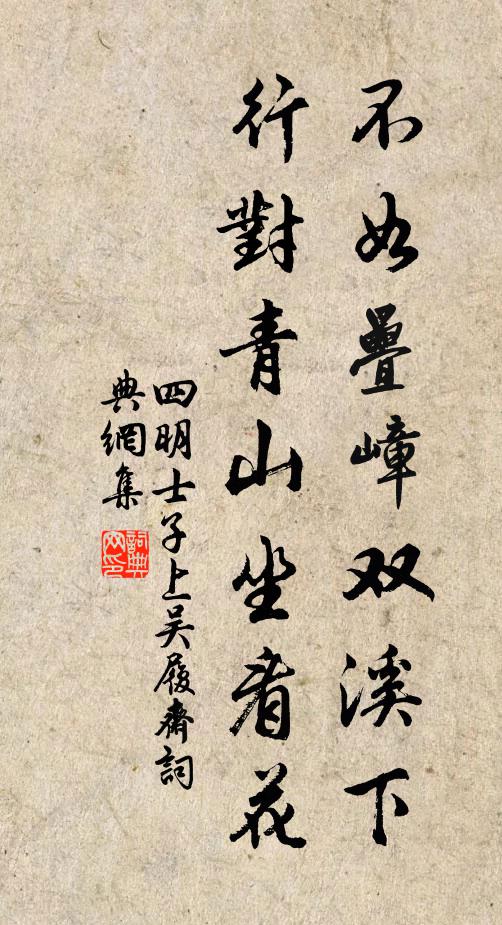 不如疊嶂双溪下
行對青山坐看花
四明士子上吴履齋詞
典網集
詞典
网印